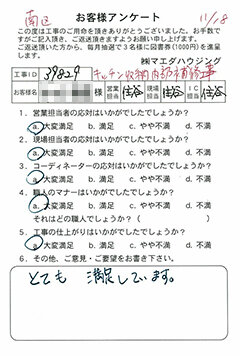 南区
お客様アンケート
11/18
この度は工事のご用命を頂きありがとうございました。お手数で
すがご記入頂き、ご返送頂きますようお願い申し上げます。
ご返送頂いた方から、毎月抽選で3名様に図書券(1000円)を進呈
します。
㈱マエダハウジング
工事ID 39829 キッチン収納内部補修工事
お客様名 様 営業担当 住谷 現場担当 住谷 IC担当 住谷
1. 営業担当者の応対はいかがでしたでしょうか?
a. 大変満足 b. 満足 c. やや不満 d. 不満
2. 現場担当者の応対はいかがでしたでしょうか?
a. 大変満足 b. 満足 c. やや不満 d. 不満
3. コーディネーターの応対はいかがでしたでしょうか?
a. 大変満足 b. 満足 c. やや不満 d. 不満
4. 職人のマナーはいかがでしたでしょうか?
a. 大変満足 b. 満足 c. やや不満 d. 不満
それはどの職人でしょうか?( )
5. 工事の仕上がりはいかがでしたでしょうか?
a. 大変満足 b. 満足 c. やや不満 d. 不満
6. その他、ご意見・ご要望をお書き下さい。
とても 満足しています。